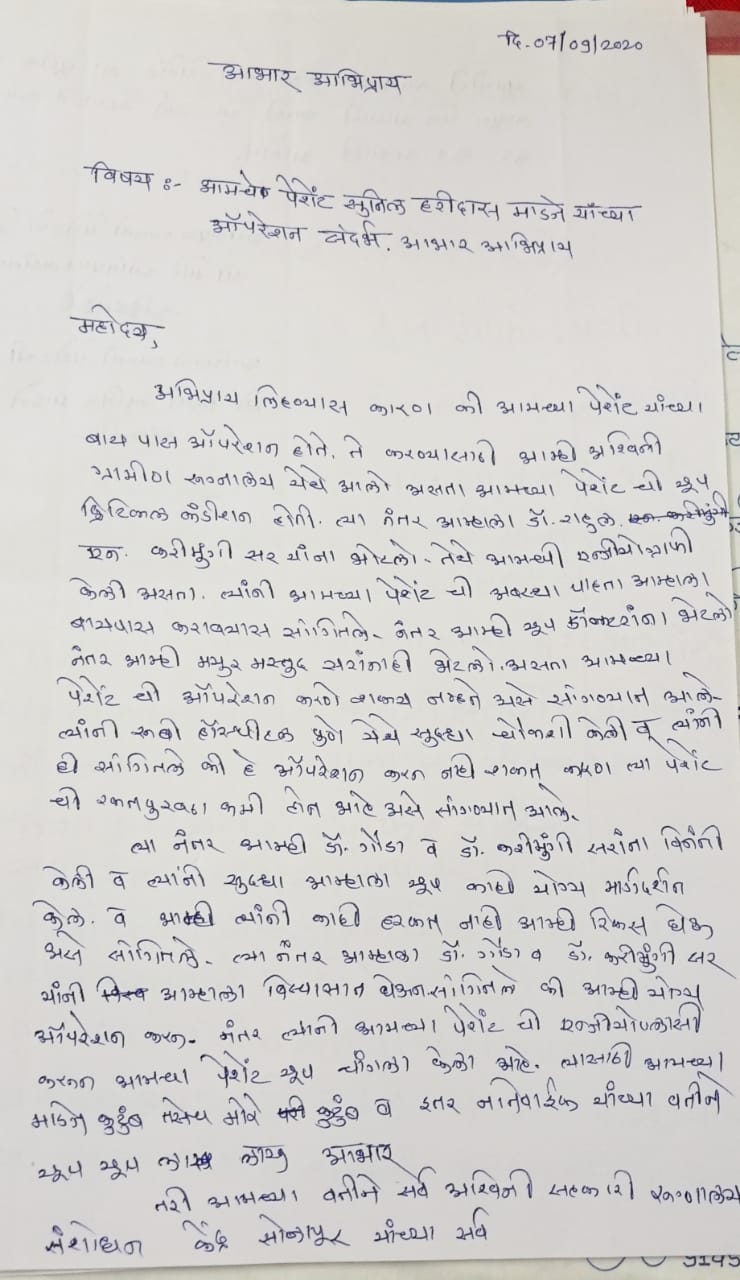 दि. 07/09/2020
आभार अभिप्राय
विषय :- आमचे पेशंट सुनिल हरीदास माडजे यांच्या
ऑपरेशन संदर्भ. आभार अभिप्राय
महोदय,
अभिप्राय लिहण्यास कारण की आमच्या पेशंट यांच्या
बाय पास ऑपरेशन होते. ते करण्यासाठी आम्ही अश्विनी
ग्रामीण रुग्नालय येथे आलो असता आमच्या पेशंट ची खूप
क्रिटिकल कंडीशन होती. त्या नंतर आम्हाला डॉ. राहुल
एन. करीमुंगी सर यांना भेटलो. तेथे आमची एन्जीयोग्राफी
केली असता. त्यांनी आमच्या पेशंट ची अवस्था पाहता आम्हाला
बायपास करावयास सांगितले. नंतर आम्ही खूप डॉक्टरांना भेटलो
नंतर आम्ही मयुर मस्तुद सरांनाही भेटलो. असता आमच्या
पेशंट ची ऑपरेशन करणे शक्य नव्हते असे सांगण्यात आले.
त्यांनी रुबी हॉस्पीटल पुणे येथे सुद्धा चौकशी केली व त्यांनी
ही सांगितले की हे ऑपरेशन करु नाही शकत कारण त्या पेशंट
ची रक्तपुरवठा कमी होत आहे असे सांगण्यात आले.
त्या नंतर आम्ही डॉ. गौडा व डॉ. करीमुंगी सरांना विनंती
केली व त्यांनी सुद्धा आम्हाला खूप काही योग्य मार्गदर्शन
केले. व आम्ही त्यांनी काही हरकत नाही आम्ही रिकस घेऊ
असे सांगितले. त्या नंतर आम्हाला डॉ. गौडा व डॉ. करीमुंगी सर
यांनी आम्हाला विश्वासात घेऊन सांगितले की आम्ही योग्य
ऑपरेशन करु. नंतर त्यांनी आमच्या पेशंट ची एन्जीयोप्लास्टी
करुन आमचा पेशंट खूप चांगला केला आहे. त्यासाठी आमच्या
माडजे कुटुंब तसेच मोरे कुटुंब व इतर नातेवाईक यांच्या वतीने
खूप खूप लाख लाख आभार
तरी आमच्या वतीने सर्व अश्विनी सहकारी रुग्णालय
संशोधन केंद्र सोलापूर यांच्या सर्व